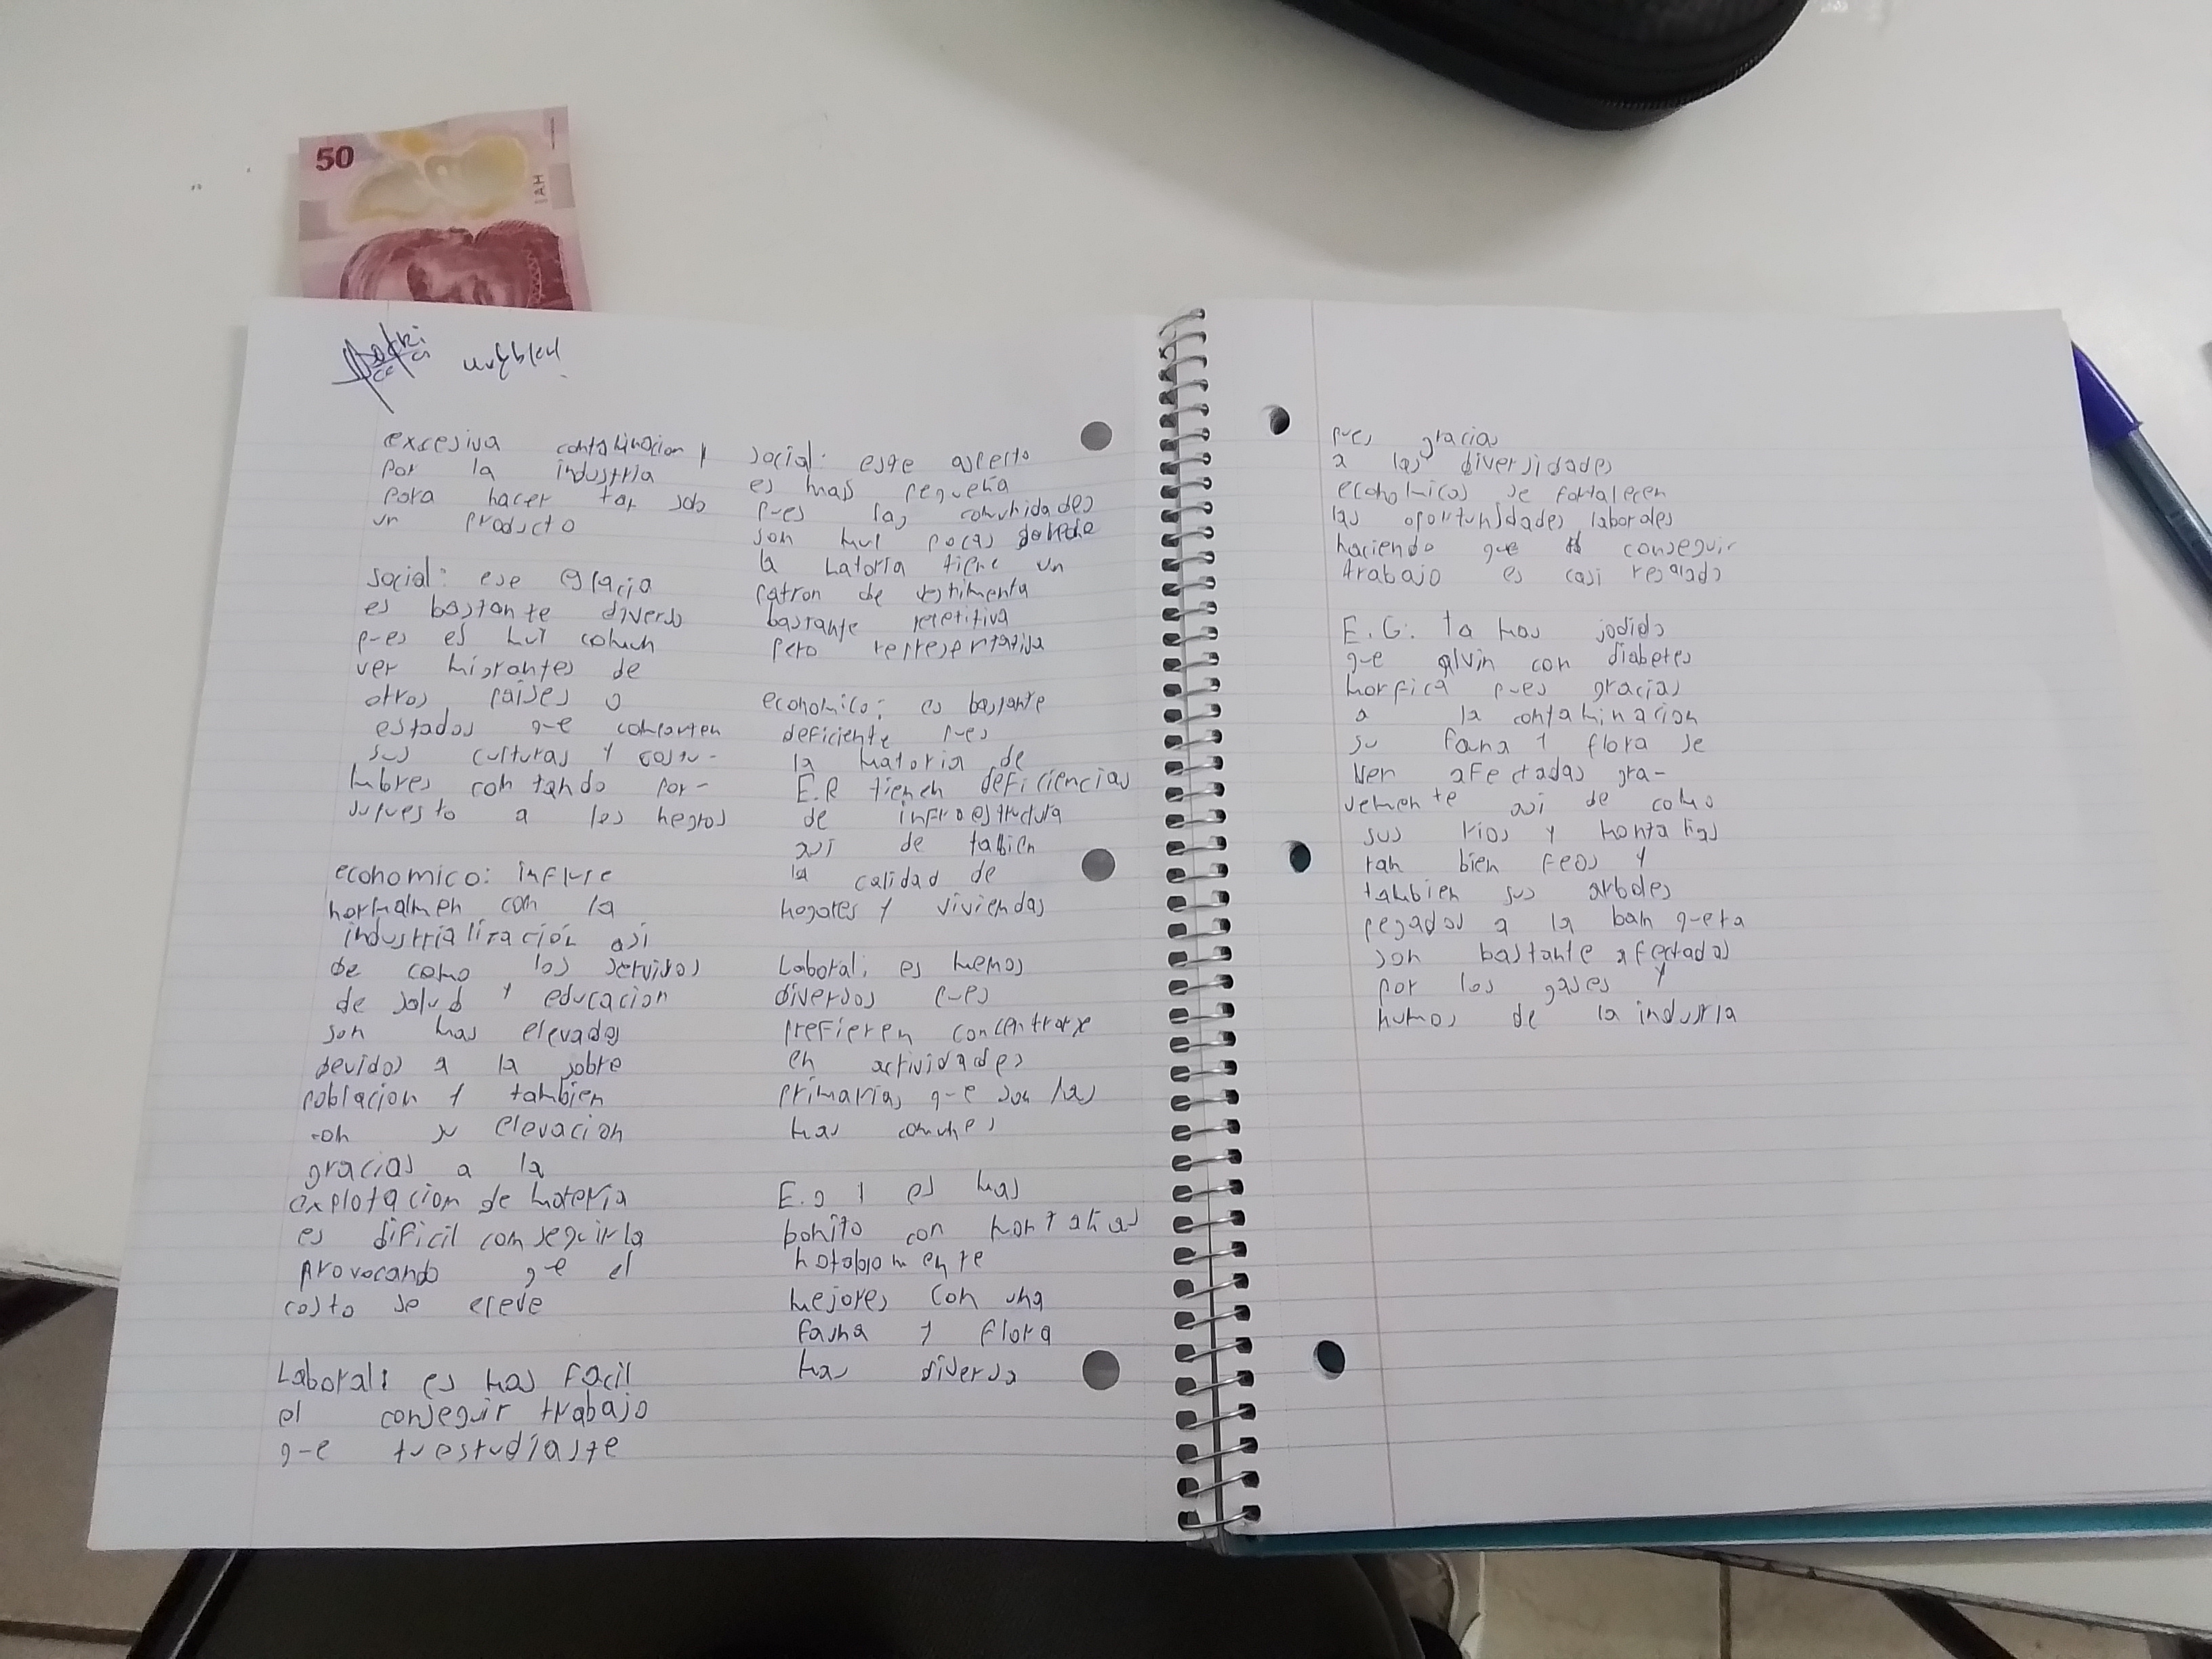 50
excesiva contaminacion
por la industria
para hacer tan solo
un producto
social: ese espacio
es bastante diverso
pues es mui comun
ver migrantes de
otros paises o
estados que comparten
sus culturas y costu-
mbres contando por-
supuesto a los negros
economico: influie
normalmen con la
industrialización asi
de como los servisos
de salud y educacion
son mas elevados
devidos a la sobre
poblacion y tambien
con su elevacion
gracias a la
explotacion de materia
es dificil conseguirla
provocando que el
costo se eleve
Laboral: es mas facil
el conseguir trabajo
que tu estudiaste
social: este aspecto
es mas pequeña
pues las comunidades
son mui pocas donde
la matoria tiene un
patron de vestimenta
bastante repetitiva
pero representativa
economico: es bastante
deficiente pues
la matoria de
E.R tienen deficiencias
de infroestructura
asi de tabien
la calidad de
hogares y viviendas
Laboral: es menos
diversos pues
prefieren concentrarse
en actividades
primarias que son las
mas comunes
E.g es mas
bonito con montañas
notablomente
mejores con una
fauna y flora
mas diversa
pues gracias
a las diversidades
economicos se fortalecen
las oportunidades laborales
haciendo que conseguir
trabajo es casi regalado
E.G: ta mas jodido
que alvin con diabetes
morfica pues gracias
a la contaminacion
su fauna y flora se
ven afectadas gra-
vemente asi de como
sus rios y montañas
tan bien feos y
tambien sus arboles
pegados a la banqueta
son bastante afectados
por los gases y
humos de la industria